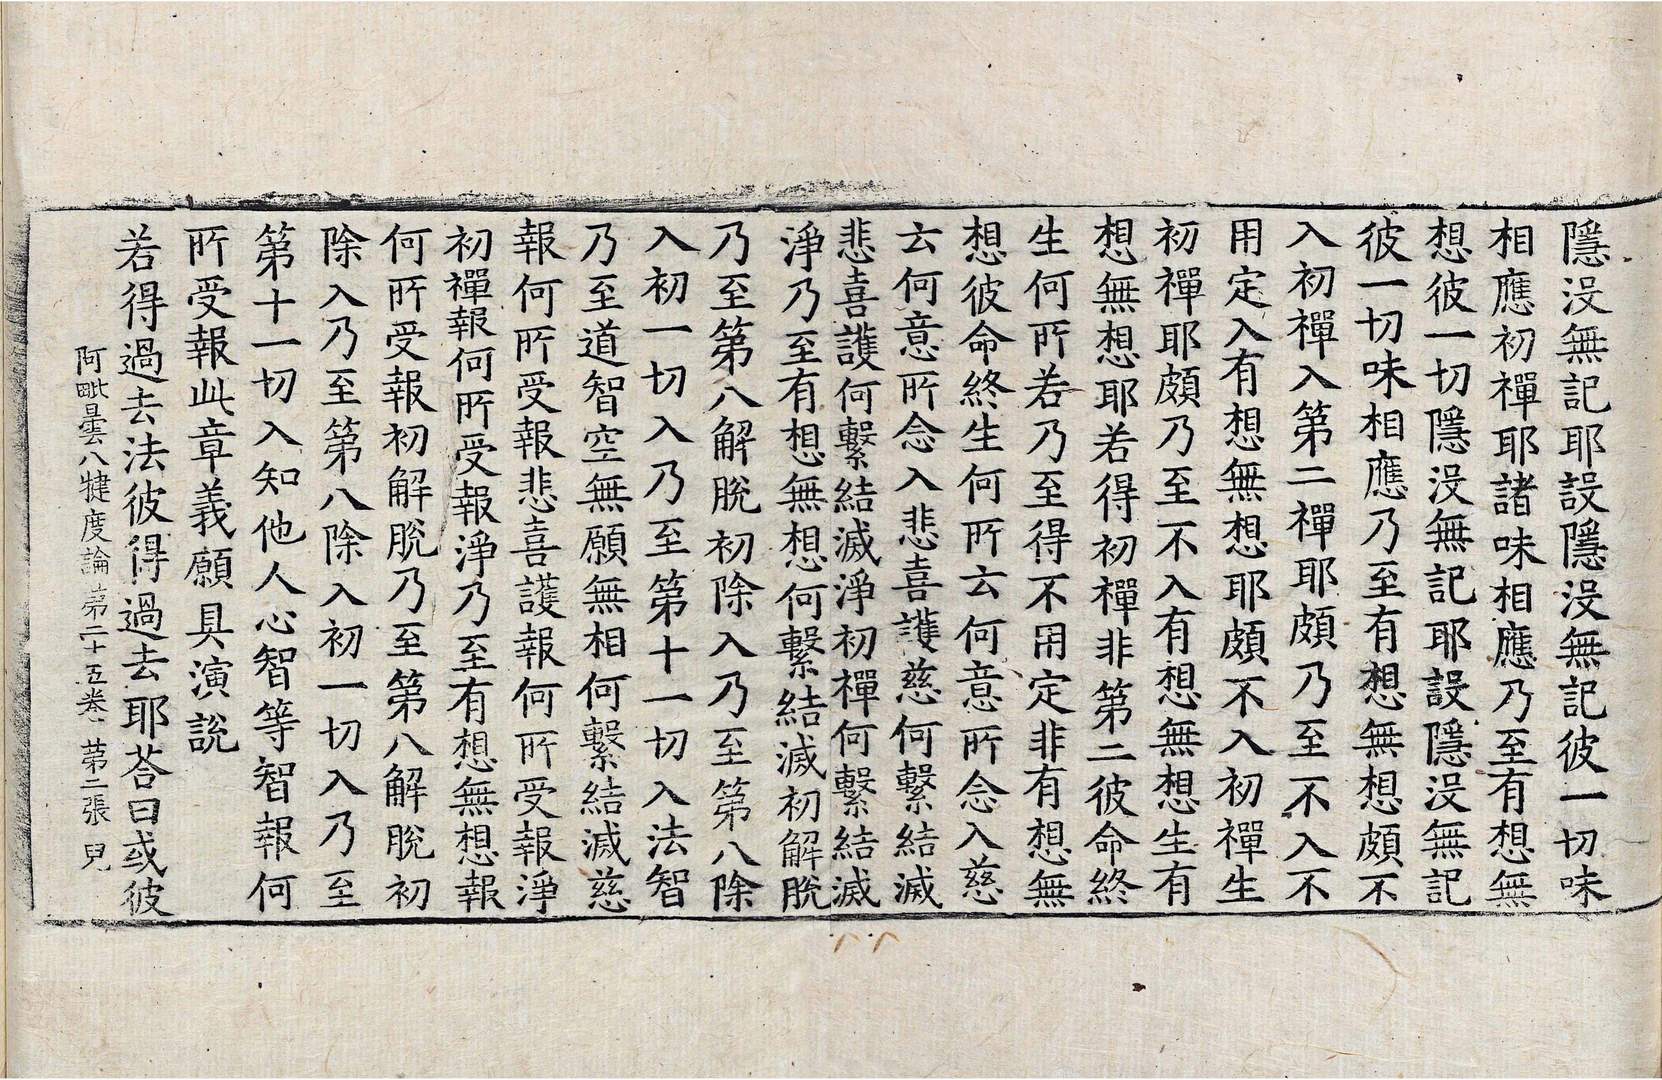 隱沒無記耶設隱沒無記彼一切味
相應初禪耶諸味相應乃至有想無
想彼一切隱沒無記耶設隱沒無記
彼一切味相應乃至有想無想頗不
入初禪入第二禪耶頗乃至不入不
用定入有想無想耶頗不入初禪生
初禪耶頗乃至不入有想無想生有
想無想耶若得初禪非第二彼命終
生何所若乃至得不用定非有想無
想彼命終生何所云何意所念入慈
云何意所念入悲喜護慈何繫結滅
悲喜護何繫結滅淨初禪何繫結滅
淨乃至有想無想何繫結滅初解脫
乃至第八解脫初除入乃至第八除
入初一切入乃至第十一切入法智
乃至道智空無願無相何繫結滅慈
報何所受報悲喜護報何所受報淨
初禪報何所受報淨乃至有想無想報
何所受報初解脫乃至第八解脫初
除入乃至第八除入初一切入乃至
第十一切入知他人心智等智報何
所受報此章義願具演說
若得過去法彼得過去耶荅曰或彼
阿毗曇八犍度論第二十五卷 第二張 兒